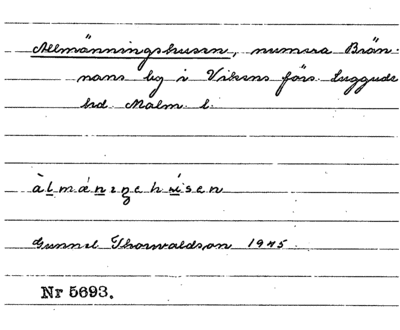 Allmänningshusen, numera Brän-
nans by i Vikens förs. Luggude
hd. Malm. l.
àlmǽnıŋehu̇́sen
Gunnel Thorwaldson 1945.
Nr 5693.